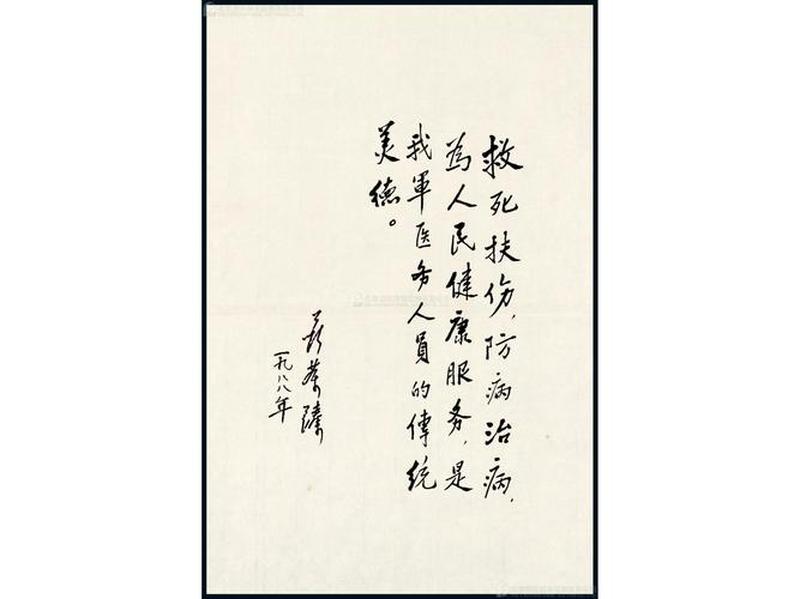 救死扶伤，防病治病，
為人民健康服务，是
我軍医务人員的傳統
美德。
聂荣臻
一九八八年